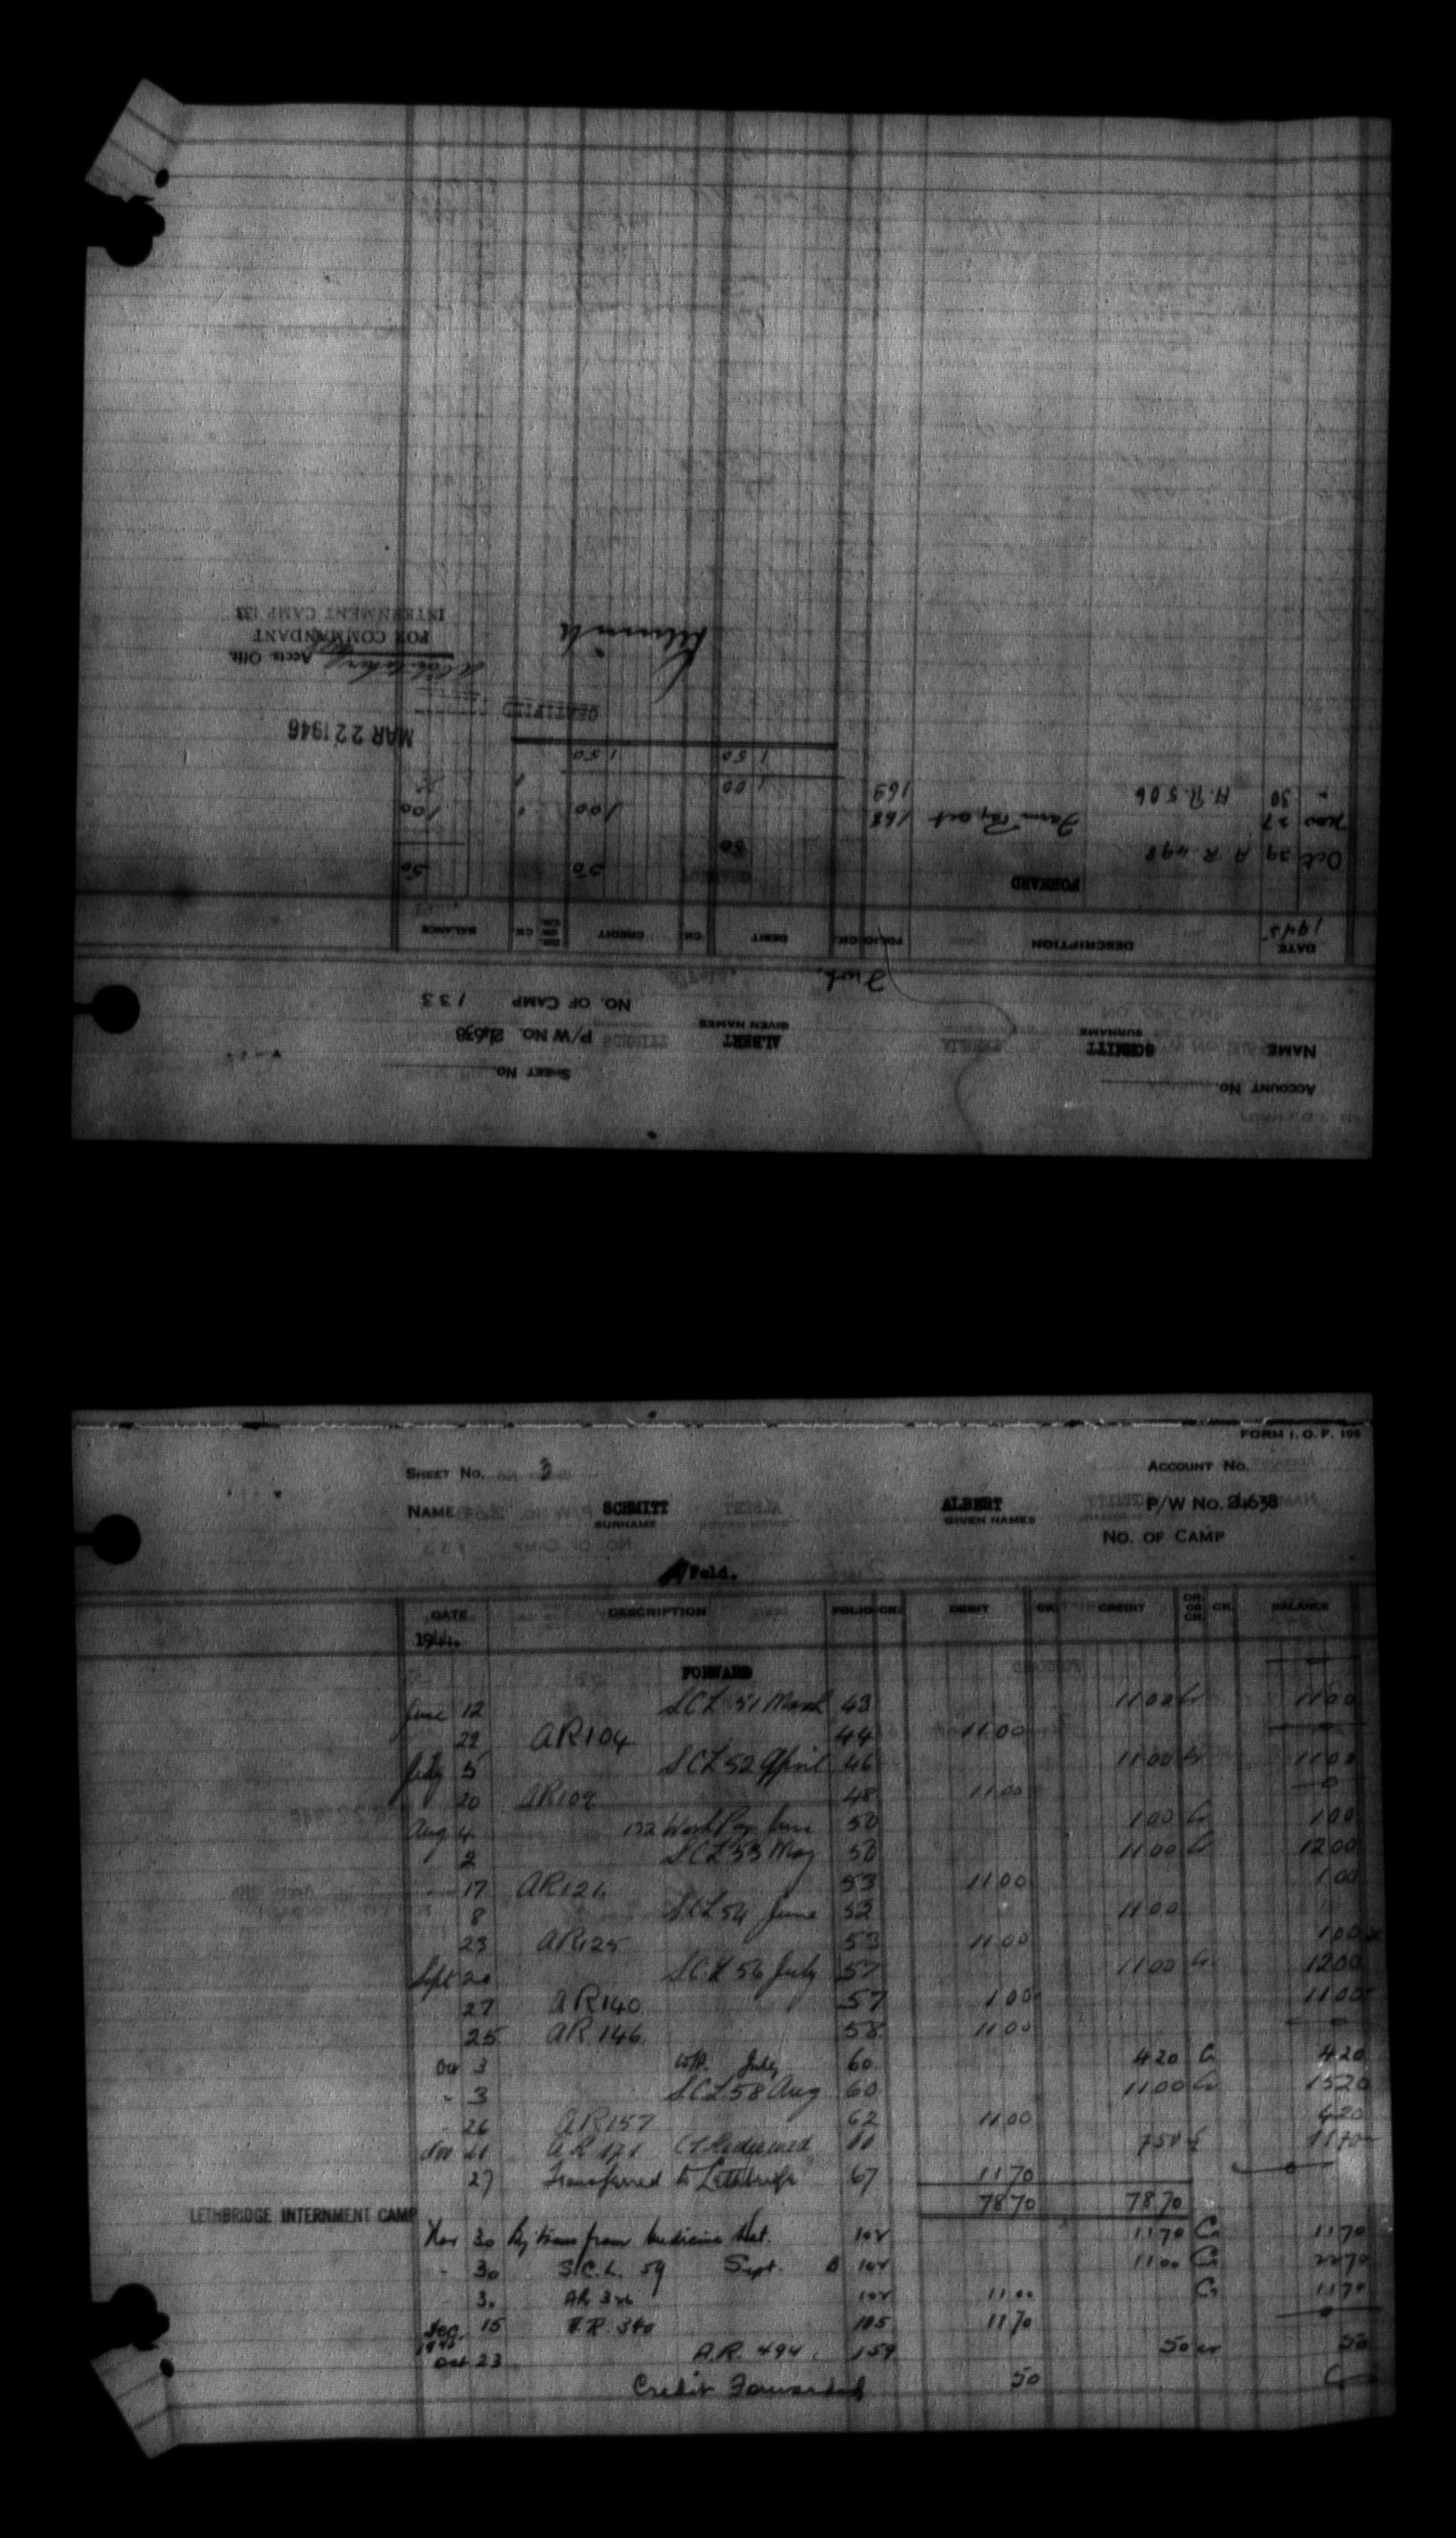 ACCOUNT No.
SHEET No.
NAME SCHMITT ALBERT P/W No. 24638
SURNAME GIVEN NAMES
NO. OF CAMP 133
DATE DESCRIPTION FOLIO CK. DEBIT CK. CREDIT DR. OR CR. CK. BALANCE
1945
FORWARD 50 50
Oct 29 A R 498 50
Nov 27 Farm Pay Oct 168 1 00 1 00
" 30 A.R. 506 169 1 00
1 50 1 50
MAR 22 1946
CERTIFIED
Schmitt
Accts. Offr.
FOR COMMANDANT
INTERNMENT CAMP 133
FORM I. O. F. 106
SHEET No. 3 ACCOUNT No.
NAME SCHMITT ALBERT P/W No. 24638
SURNAME GIVEN NAMES
NO. OF CAMP
Feld.
DATE DESCRIPTION FOLIO CK. DEBIT CK. CREDIT DR. OR CR. CK. BALANCE
1944.
FORWARD
June 12 SCL 51 March 43 11 00 Cr 11 00
22 AR 104 44 11 00
July 5 SCL 52 April 46 11 00 Cr 11 00
20 AR 109 48 11 00
Aug 4 122 Work Pay June 50 1 00 Cr 1 00
2 SCL 53 May 50 11 00 Cr 12 00
17 AR 121 53 11 00 1 00
8 SCL 54 June 52 11 00
23 AR 125 53 11 00 1 00
Sept 20 SCL 56 July 57 11 00 Cr 12 00
27 AR 140 57 1 00 11 00
25 AR 146 58 11 00
Oct 3 W/P. July 60 4 20 Cr 4 20
" 3 SCL 58 Aug 60 11 00 Cr 15 20
26 AR 157 62 11 00 4 20
Nov 21 AR 171 Redeemed 7 50 11 70
27 Transferred to Lethbridge 67 11 70
78 70 78 70
LETHBRIDGE INTERNMENT CAMP
Nov 30 By trans from Medicine Hat. 102 11 70 Cr 11 70
" 30 S.C.L. 59 Sept. 102 11 00 Cr 22 70
30 AR 102 11 00 Cr 11 70
15 A.R. 340 105 11 70
1945
Oct 23 A.R. 494. 159 50 cr 50
Credit Forwarded 50